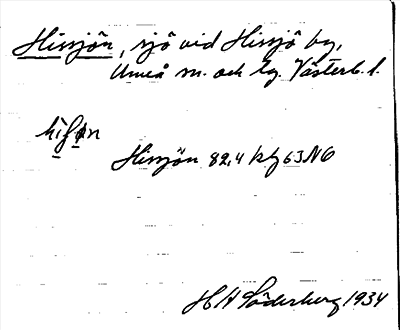 Hissjön, sjö vid Hissjö by,
Umeå sn. och lg. Västerb. l.
Hissjön 82,4 kbl 63 NO
H A Söderberg 1934